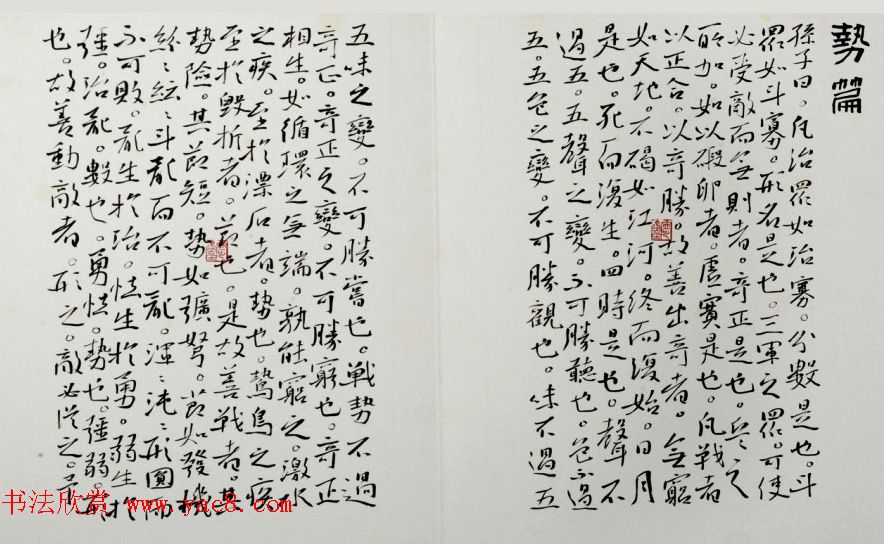 勢篇
孫子曰。凡治眾如治寡。分數是也。斗
眾如斗寡。形名是也。三軍之眾。可使
必受敵而無則者。奇正是也。兵之
所加。如以碫卵者。虛實是也。凡戰者
以正合。以奇勝。故善出奇者。無窮
如天地。不竭如江河。終而復始。日月
是也。死而復生。四時是也。聲不
過五。五聲之變。不可勝聽也。色不過
五。五色之變。不可勝觀也。味不過五
五味之變。不可勝嘗也。戰勢不過
奇正。奇正之變。不可勝窮也。奇正
相生。如循環之無端。孰能窮之。激水
之疾。至於漂石者。勢也。鷙鳥之疾
至於毀折者。節也。是故善戰者。其
勢險。其節短。勢如彍弩。節如發機
紛〻紜〻斗亂而不可亂。渾〻沌〻形圓而
不可敗。亂生於治。怯生於勇。弱生於
彊。治亂。數也。勇怯。勢也。彊弱。形
也。故善動敵者。形之。敵必從之。予
书法欣赏 www.yac8.com